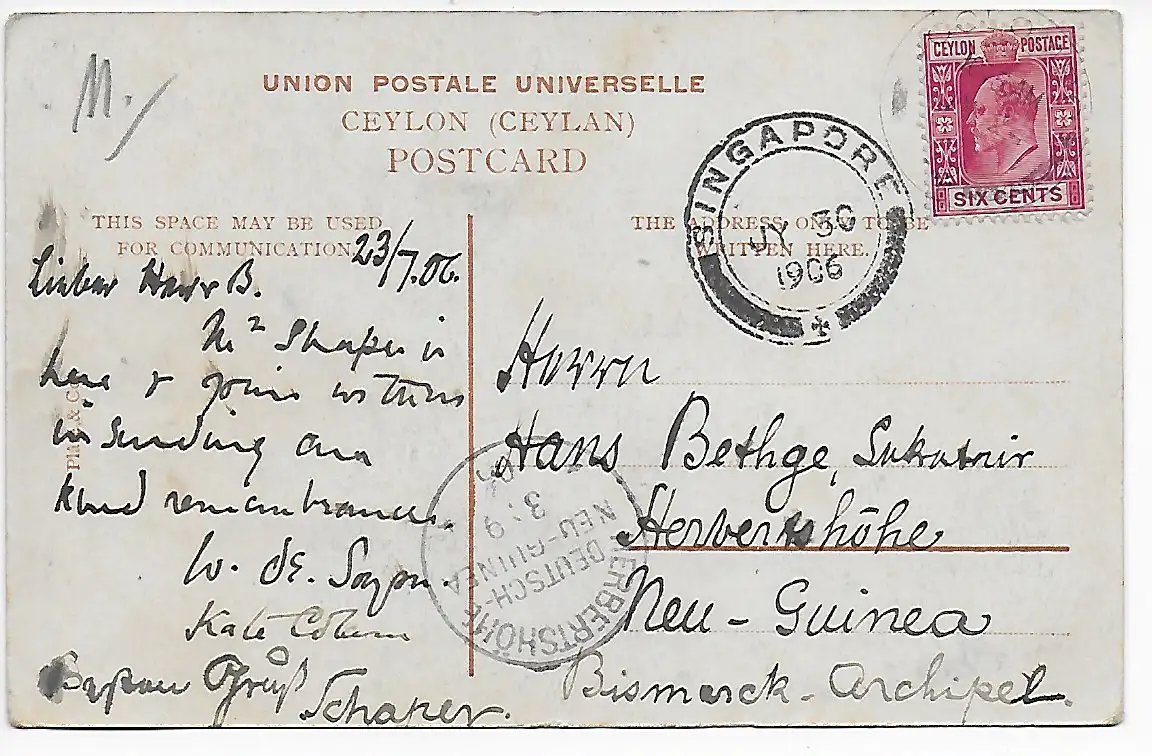 M./
UNION POSTALE UNIVERSELLE
CEYLON (CEYLAN)
POSTCARD
CEYLON POSTAGE
SIX CENTS
SINGAPORE
JY 30
1906
THIS SPACE MAY BE USED
FOR COMMUNICATION
THE ADDRESS ONLY TO BE
WRITTEN HERE.
23/7.06.
Lieber Herr B.
Mr Schaper is
here & joins with us
in sending our
kind remembrances.
W. de
Kate
Besten Gruß
Schaper.
Herrn
Hans Bethge, Sekretair
Herbertshöhe
Neu-Guinea
Bismarck-Archipel.
HERBERTSHÖHE
DEUTSCH-
NEU-GUINEA
3.9
06